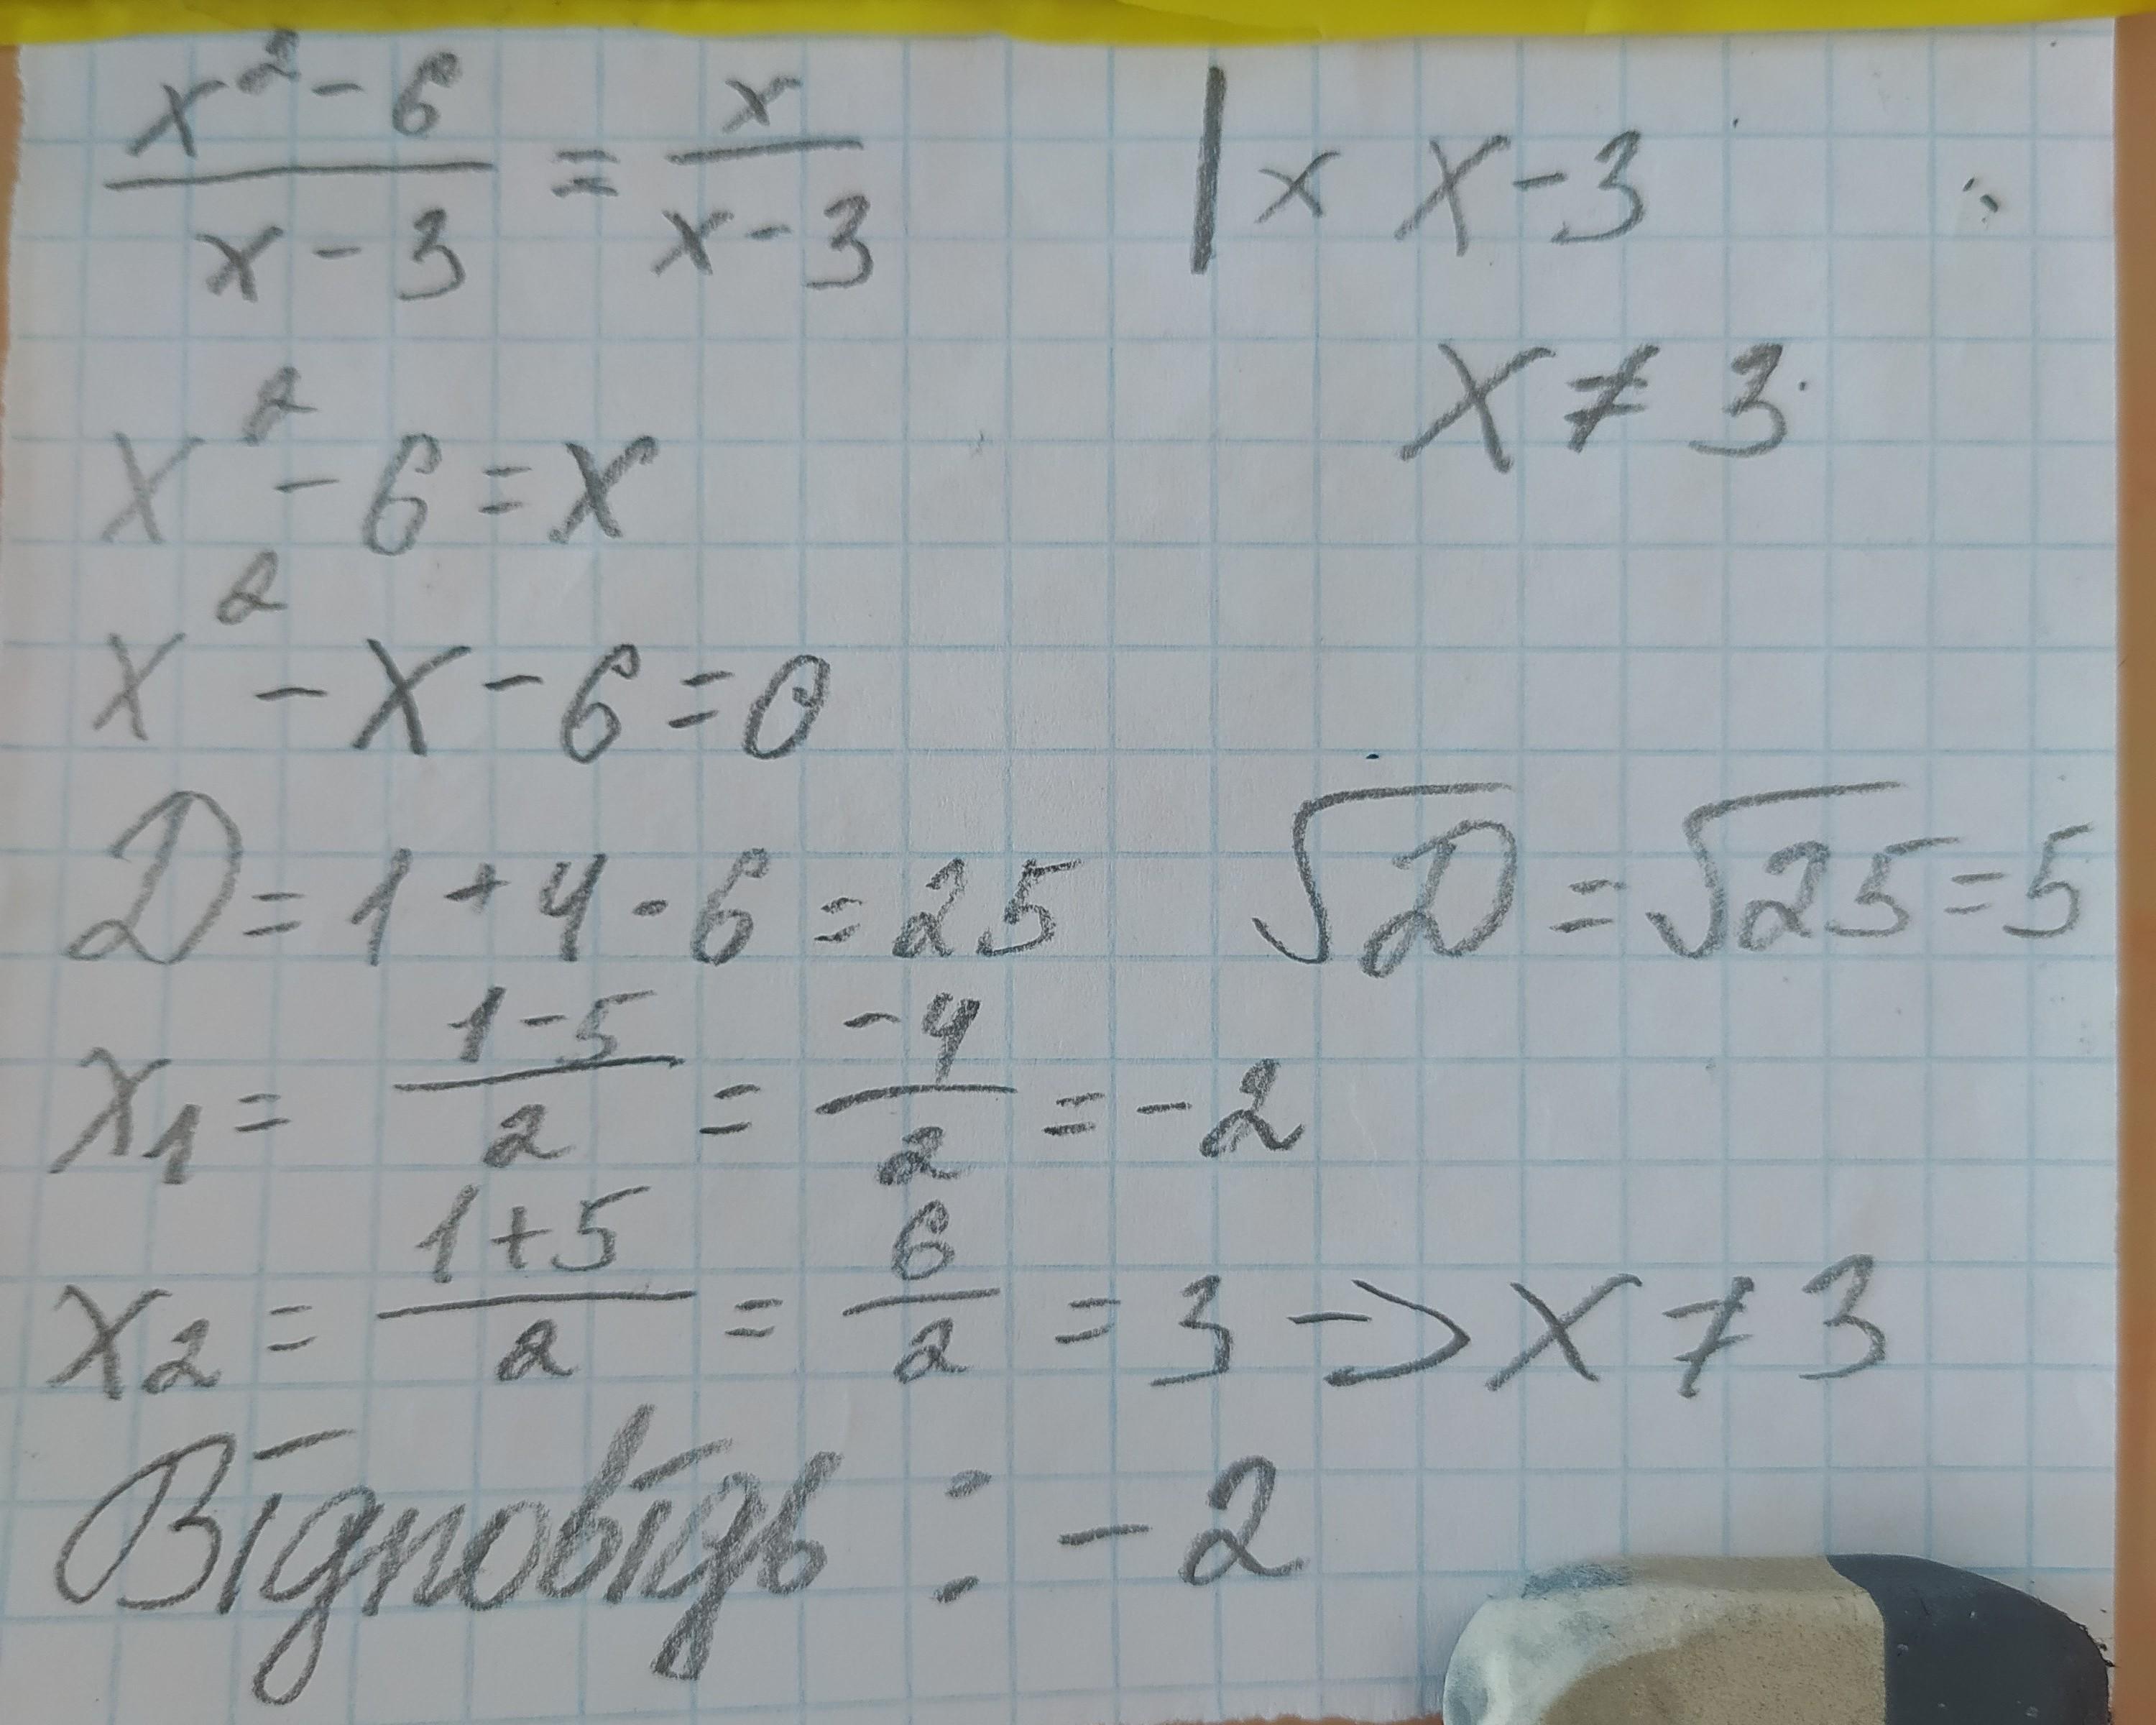 x²-6/x-3 = x/x-3 | × x-3
x ≠ 3
x²-6=x
x²-x-6=0
D=1+4·6=25 √D=√25=5
x₁= 1-5/2 = -4/2 =-2
x₂= 1+5/2 = 6/2 =3 -> x ≠ 3
Відповідь: -2